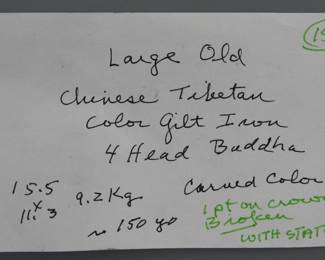 Large Old
Chinese Tibetan
Color Gilt Iron
4 Head Buddha
15.5
x
11 3
9.2 Kg
~ 150 yo
Carved Color
1 pt on crown
Broken
WITH STAT